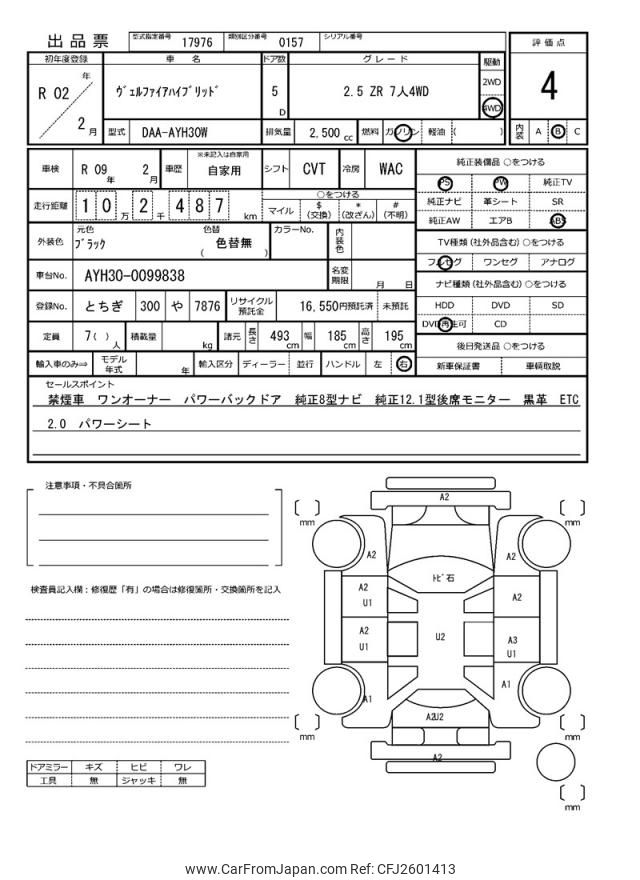 出品票 型式指定番号 17976 類別区分番号 0157 シリアル番号
初年度登録 車 名 ドア数 グレード 駆動 評価点
R 02 年 2 月 ヴェルファイアハイブリッド 5 D 2.5 ZR 7人4WD 2WD 4WD 4
型式 DAA-AYH30W 排気量 2,500 cc 燃料 ガソリン 軽油 ( ) 内装 A B C
車検 R 09 年 2 月 車歴 ※未記入は自家用 自家用 シフト CVT 冷房 WAC 純正装備品 ○をつける
PS PW 純正TV
走行距離 1 0 万 2 千 4 8 7 km ○をつける マイル $ (交換) * (改ざん) # (不明) 純正ナビ 革シート SR
純正AW エアB ABS
外装色 元色 ブラック 色替 ( 色替無 ) カラーNo. 内装色 TV種類 (社外品含む) ○をつける
フルセグ ワンセグ アナログ
車台No. AYH30-0099838 名変期限 月 日 ナビ種類 (社外品含む) ○をつける
登録No. とちぎ 300 や 7876 リサイクル預託金 16,550円預託済 未預託 HDD DVD SD
DVD再生可 CD
定員 7 ( ) 人 積載量 kg 諸元 長さ 493 cm 幅 185 cm 高さ 195 cm 後日発送品 ○をつける
輸入車のみ⇒ モデル年式 年 輸入区分 ディーラー 並行 ハンドル 左 右 新車保証書 車輌取説
セールスポイント
禁煙車 ワンオーナー パワーバックドア 純正8型ナビ 純正12.1型後席モニター 黒革 ETC
2.0 パワーシート
注意事項・不具合箇所
検査員記入欄：修復歴「有」の場合は修復箇所・交換箇所を記入
A2
mm mm
A2 A2
トビ石
A2 U1 A2
A2 U1 U2 A3 U1
A1 A1
A2U2
mm mm
A2
mm
ドアミラー キズ ヒビ ワレ
工具 無 ジャッキ 無
www.CarFromJapan.com Ref: CFJ2601413